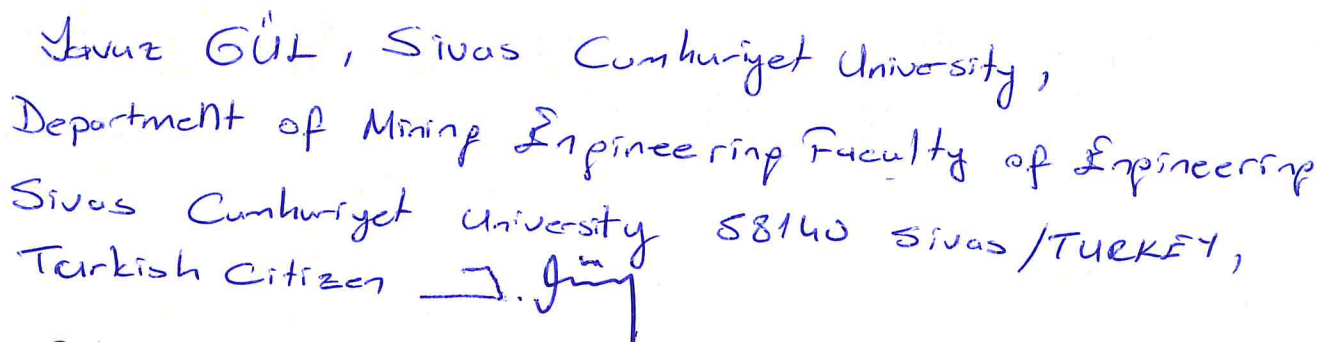 Yavuz GÜL, Sivas Cumhuriyet University,
Department of Mining Engineering Faculty of Engineering
Sivas Cumhuriyet University 58140 Sivas/TURKEY,
Turkish Citizen